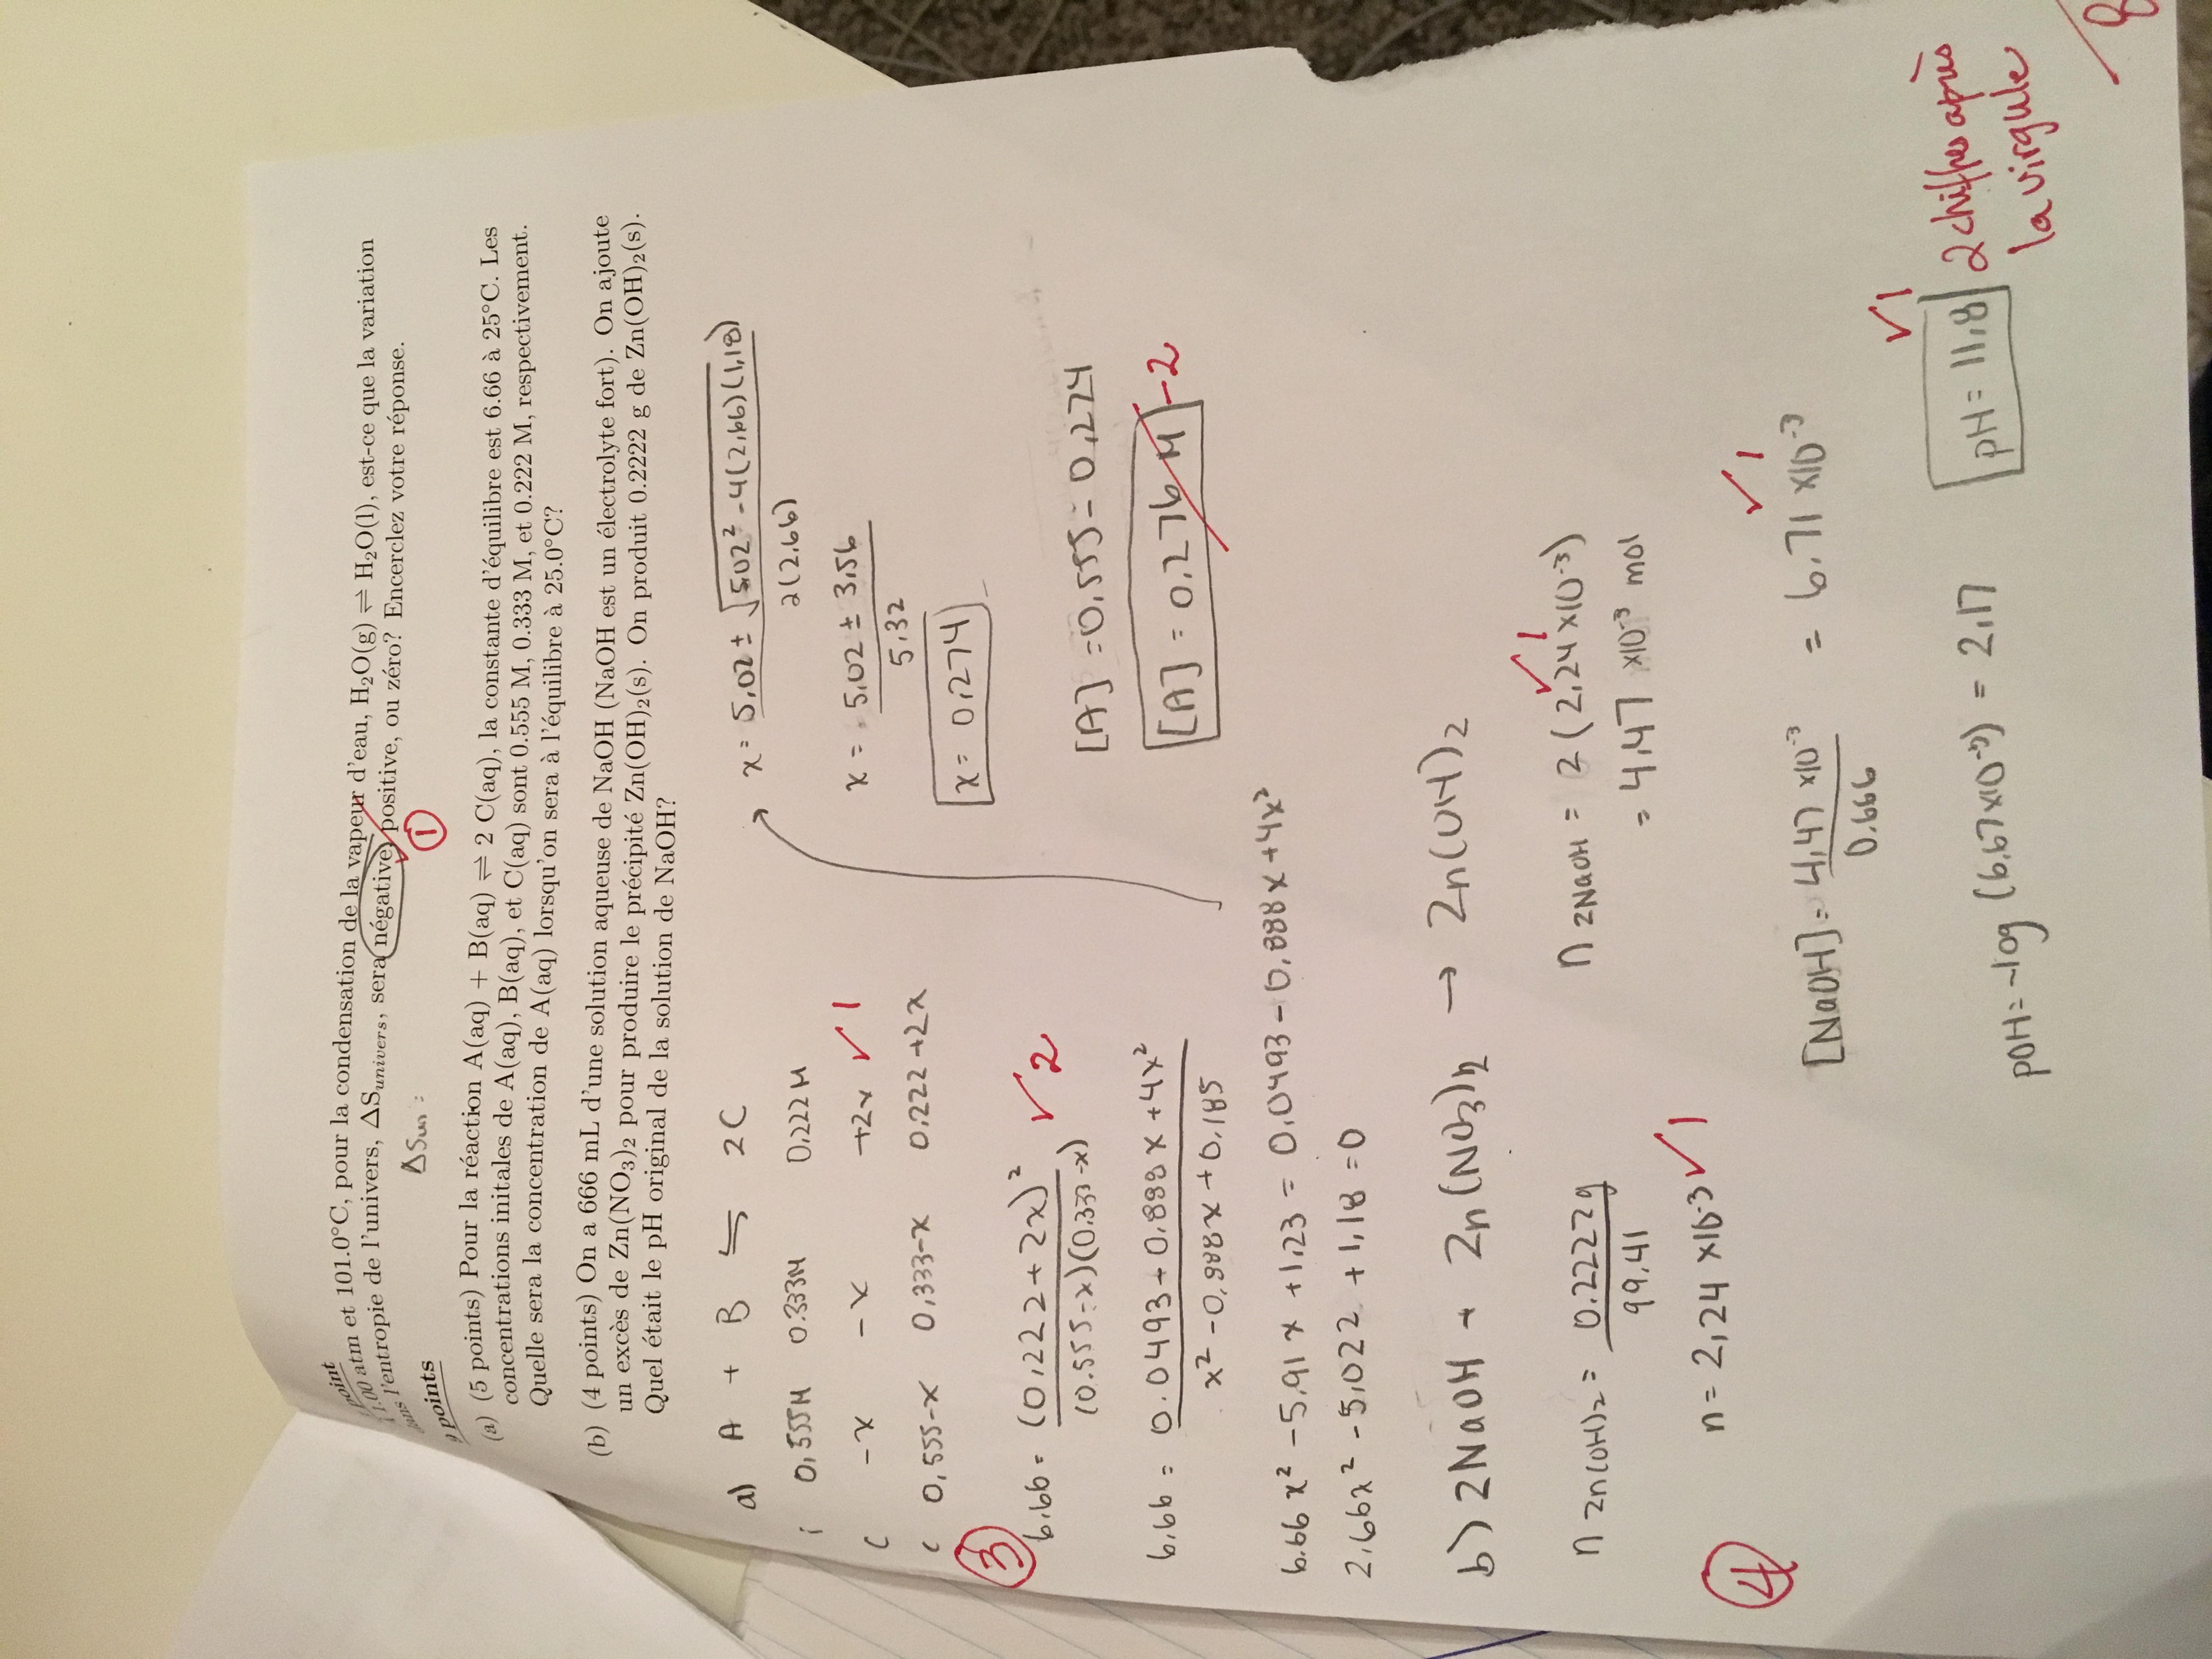 point
1.00 atm et 101.0°C, pour la condensation de la vapeur d'eau, H₂O(g) ⇌ H₂O(l), est-ce que la variation
dans l'entropie de l'univers, ΔSunivers, sera négative, positive, ou zéro? Encerclez votre réponse.
①
9 points
(a) (5 points) Pour la réaction A(aq) + B(aq) ⇌ 2 C(aq), la constante d'équilibre est 6.66 à 25°C. Les
concentrations initales de A(aq), B(aq), et C(aq) sont 0.555 M, 0.333 M, et 0.222 M, respectivement.
Quelle sera la concentration de A(aq) lorsqu'on sera à l'équilibre à 25.0°C?
(b) (4 points) On a 666 mL d'une solution aqueuse de NaOH (NaOH est un électrolyte fort). On ajoute
un excès de Zn(NO₃)₂ pour produire le précipité Zn(OH)₂(s). On produit 0.2222 g de Zn(OH)₂(s).
Quel était le pH original de la solution de NaOH?
a) A + B ⇌ 2C
i 0,555M 0.333M 0,222M
c -x -x +2x ✓1
0,555-x 0,333-x 0,222+2x
③
6,66 = (0,222+2x)² / (0.555-x)(0.333-x) ✓2
6,66 = 0.0493+0,888x+4x² / x²-0,888x+0,185
6.66x² -5,91x +1,23 = 0,0493-0,888x+4x²
2,66x² -5,022 +1,18 =0
x = 5,02 ± √5,02² -4(2,66)(1,18) / 2(2,66)
x = 5,02 ± 3,56 / 5,32
x = 0,274
[A] = 0,555 - 0,274
[A] = 0,276 M -2
b) 2NaOH + Zn(NO₃)₂ → Zn(OH)₂
n Zn(OH)₂ = 0.2222g / 99,41
n = 2,24 x10⁻³ ✓1
④
n 2NaOH = 2(2,24x10⁻³) ✓1
= 4,47 x10⁻³ mol
[NaOH] = 4,47 x10⁻³ / 0.666 = 6,71 x10⁻³ ✓1
pOH = -log (6,67x10⁻³) = 2,17
pH = 11,8 ✓1
2 chiffres après
la virgule
8